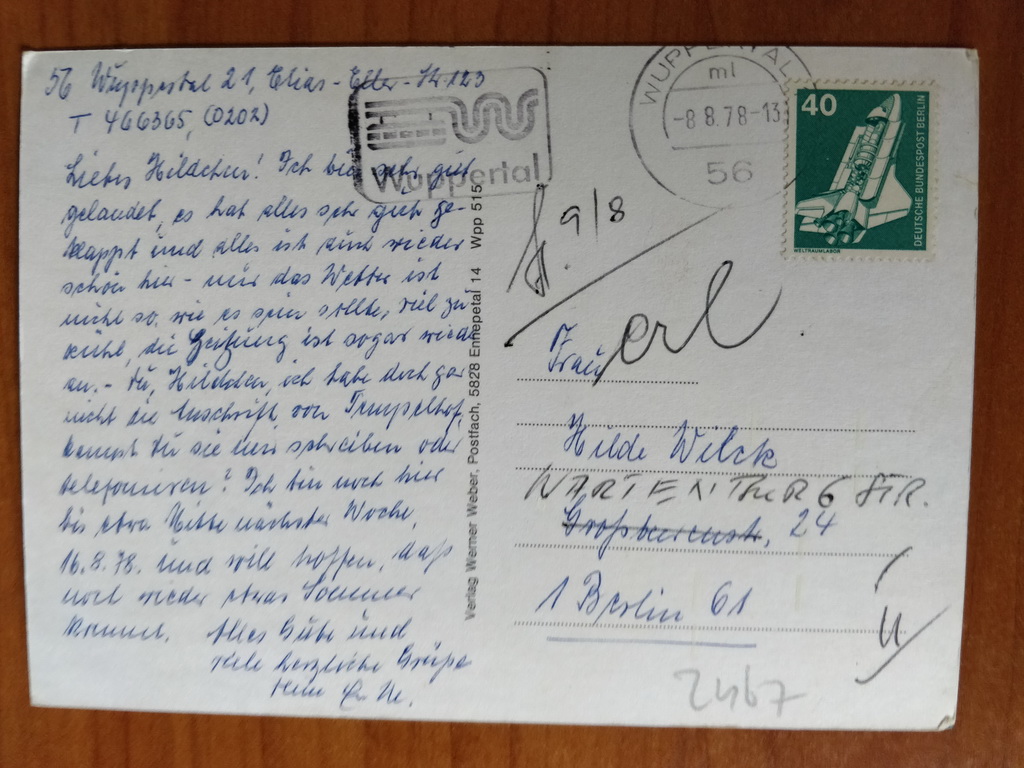 56 Wuppertal 21, Elias-Eller-Str 123
T 466365, (0202)
Liebes Hildchen! Ich bin sehr gut
gelandet, es hat alles sehr gut ge-
klappt und alles ist auch wieder
schön hier - nur das Wetter ist
nicht so, wie es sein sollte, viel zu
kühl, die Heizung ist sogar wieder
an. - Du, Hildchen, ich habe doch gar
nicht die Anschrift von Tempelhof,
kannst Du sie mir schreiben oder
telefonieren? Ich bin noch hier
bis etwa Mitte nächster Woche,
16.8.78. und will hoffen, daß
noch wieder etwas Sommer
kommt. Alles Gute und
viele herzliche Grüße
Wuppertal
Verlag Werner Weber, Postfach, 5828 Ennepetal 14 Wpp 515
WUPPERTAL
ml
-8 8.78-13
56
40
DEUTSCHE BUNDESPOST BERLIN
WELTRAUMLABOR
9/8
erl
Frau
Hilde Wilck
WARTENBURGSTR.
Großbeerenstr. 24
1 Berlin 61
2467